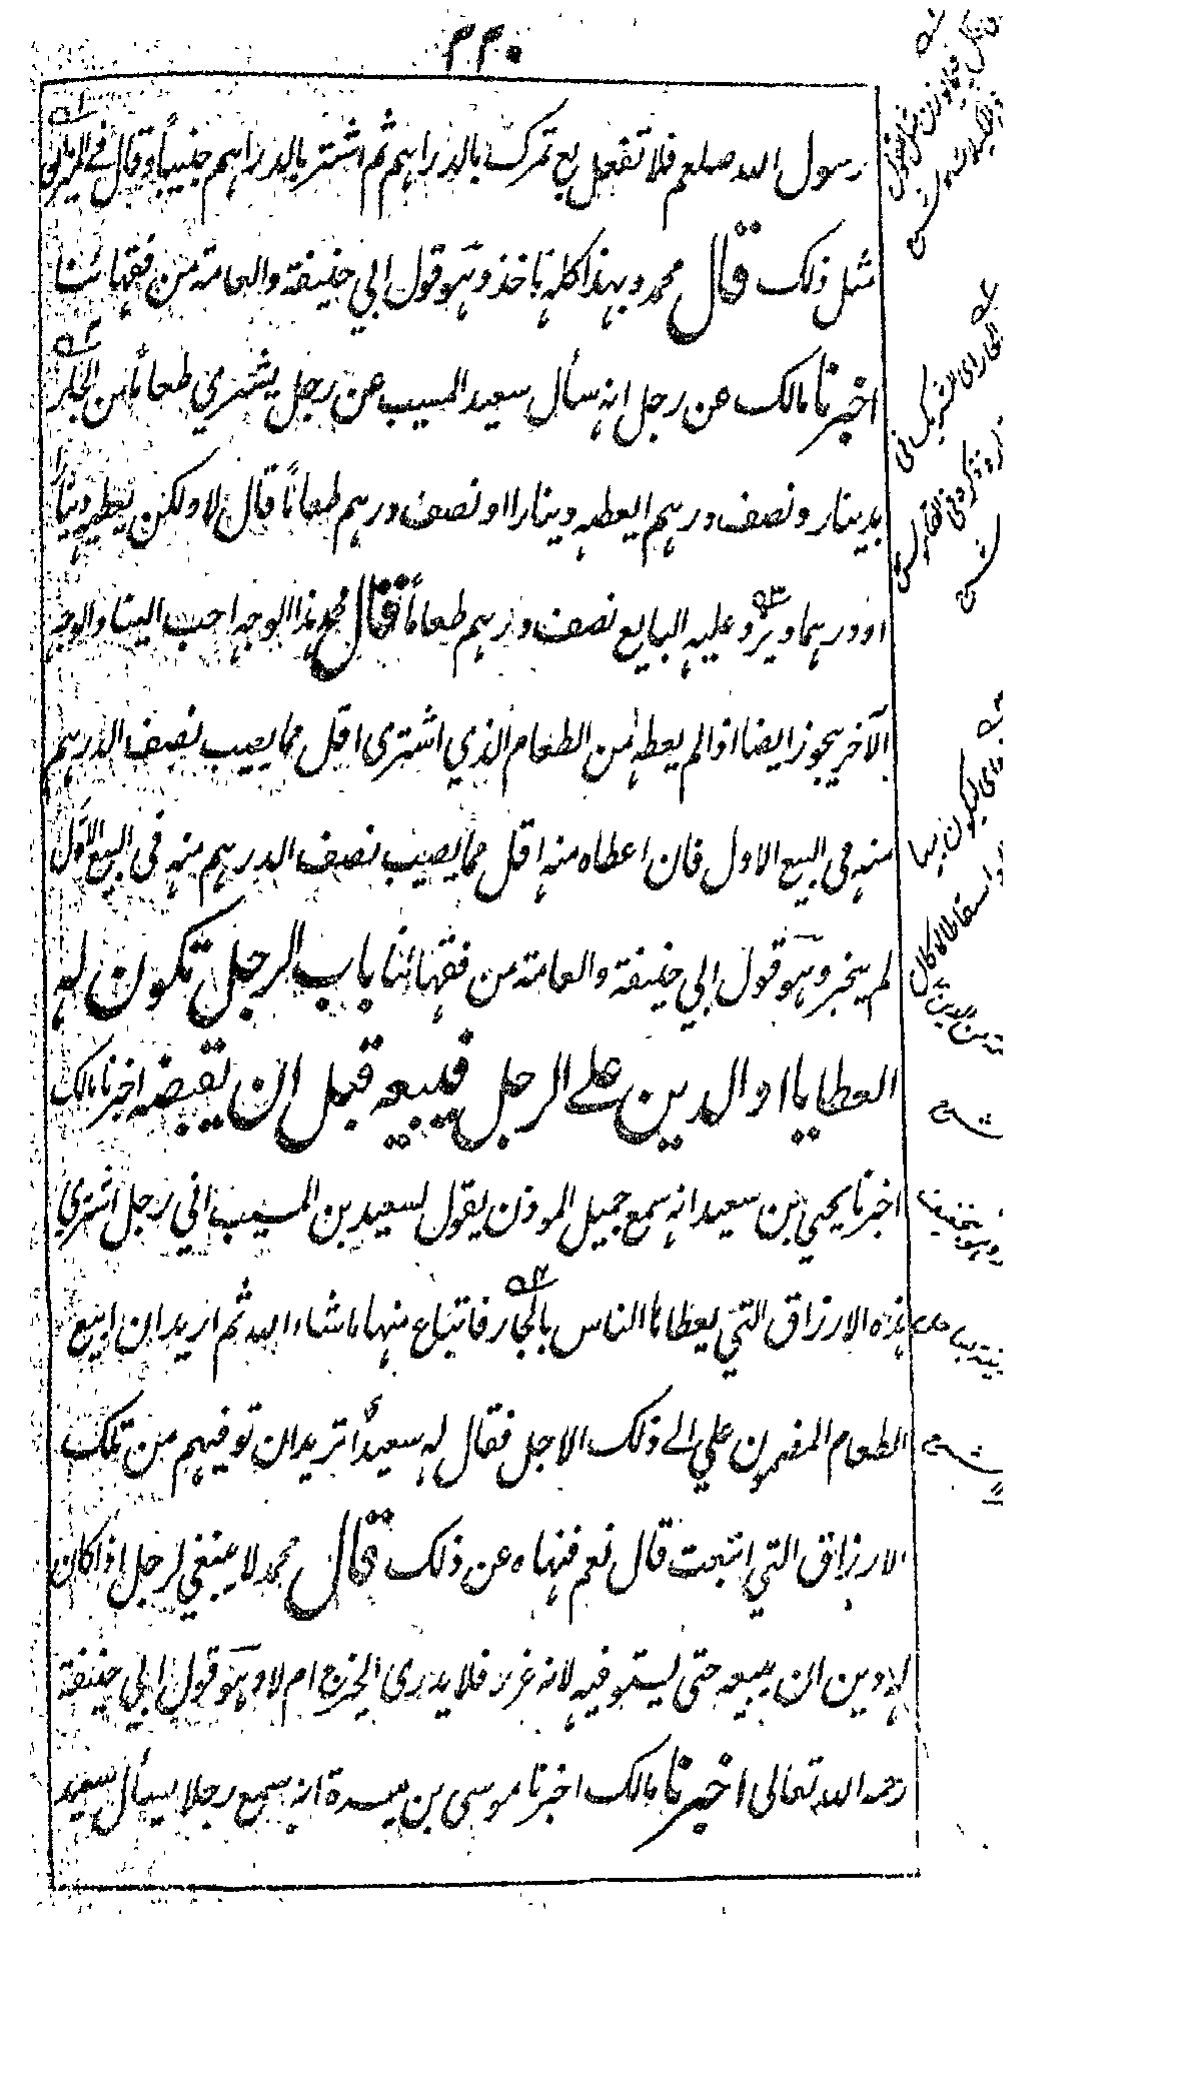 ٢٢٠
رسول الله صلعم فلا تفعل بع تمرك بالدراهم ثم اشتر بالدراهم جنيبا وقال في الميزان
مثل ذلك قال محمد وبهذا كله ناخذ وهو قول ابي حنيفة والعامة من فقهائنا
اخبرنا مالك عن رجل انه سأل سعيد المسيب عن رجل يشتري طعاما من الجار
بدينار ونصف درهم ايعطيه دينارا او نصف درهم طعاما قال لا ولكن يعطيه دينارا
او درهما ويرد عليه البايع نصف درهم طعاما قال محمد هذا الوجه احب الينا والوجه
الآخر يجوز ايضا اذا لم يعطه من الطعام الذي اشترى اقل مما يصيب نصف الدرهم
منه في البيع الاول فان اعطاه منه اقل مما يصيب نصف الدرهم منه في البيع الاول
لم يجز وهو قول ابي حنيفة والعامة من فقهائنا باب الرجل تكون له
العطايا او الدين على الرجل فيبيعه قبل ان يقبضه اخبرنا مالك
اخبرنا يحيي بن سعيد انه سمع جميل الموذن يقول لسعيد بن المسيب اني رجل اشتري
هذه الارزاق التي يعطاها الناس بالجار فابتاع منها ما شاء الله ثم اريد ان ابيع
الطعام المضمون علي الى ذلك الاجل فقال له سعيد اتريد ان توفيهم من تلك
الارزاق التي ابتعت قال نعم فنهاه عن ذلك قال محمد لا ينبغي لرجل اذا كان
له دين ان يبيعه حتى يستوفيه لانه غرر فلا يدرى ايخرج ام لا وهو قول ابي حنيفة
رحمه الله تعالى اخبرنا مالك اخبرنا موسى بن ميسرة انه سمع رجلا يسأل سعيد